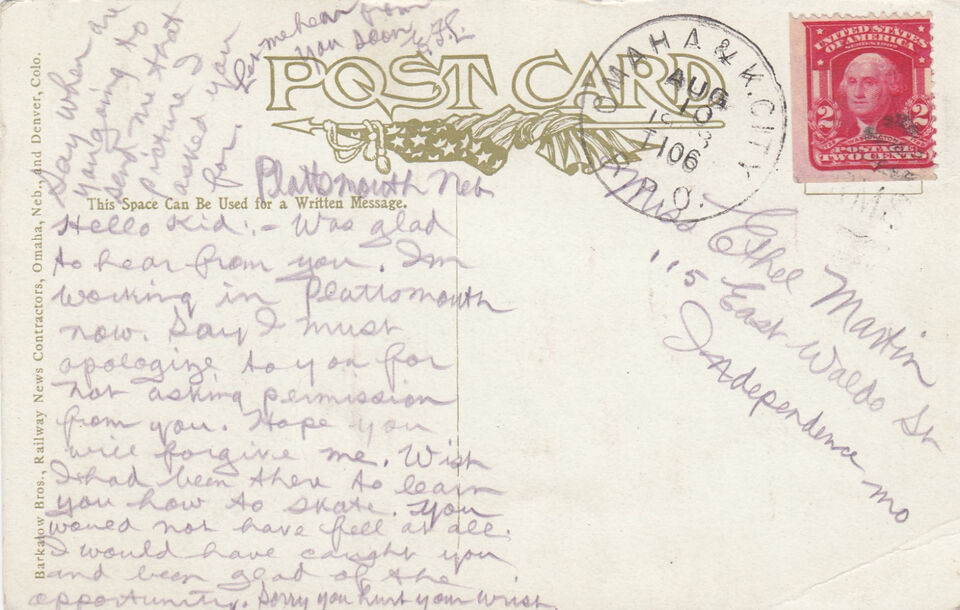 POST CARD
This Space Can Be Used for a Written Message.
Barkalow Bros., Railway News Contractors, Omaha, Neb., and Denver, Colo.
OMAHA & K. CITY
AUG
10
T 106
R.P.O.
UNITED STATES
OF AMERICA
SERIES 1902
2 2
POSTAGE
TWO CENTS
Miss Ethel Martin
115 East Waldo St
Independence Mo
Plattsmouth Neb
Hello Kid:- Was glad
to hear from you. Im
working in Plattsmouth
now. Say I must
apologize to you for
not asking permission
from you. Hope you
will forgive me. Wish
I had been there to learn
you how to skate. You
would not have fell at all.
I would have caught you
and been glad of the
opportunity. Sorry you hurt your wrist
Say when are
you going to
send me that
picture I
asked you
for.
Let me hear from
you soon